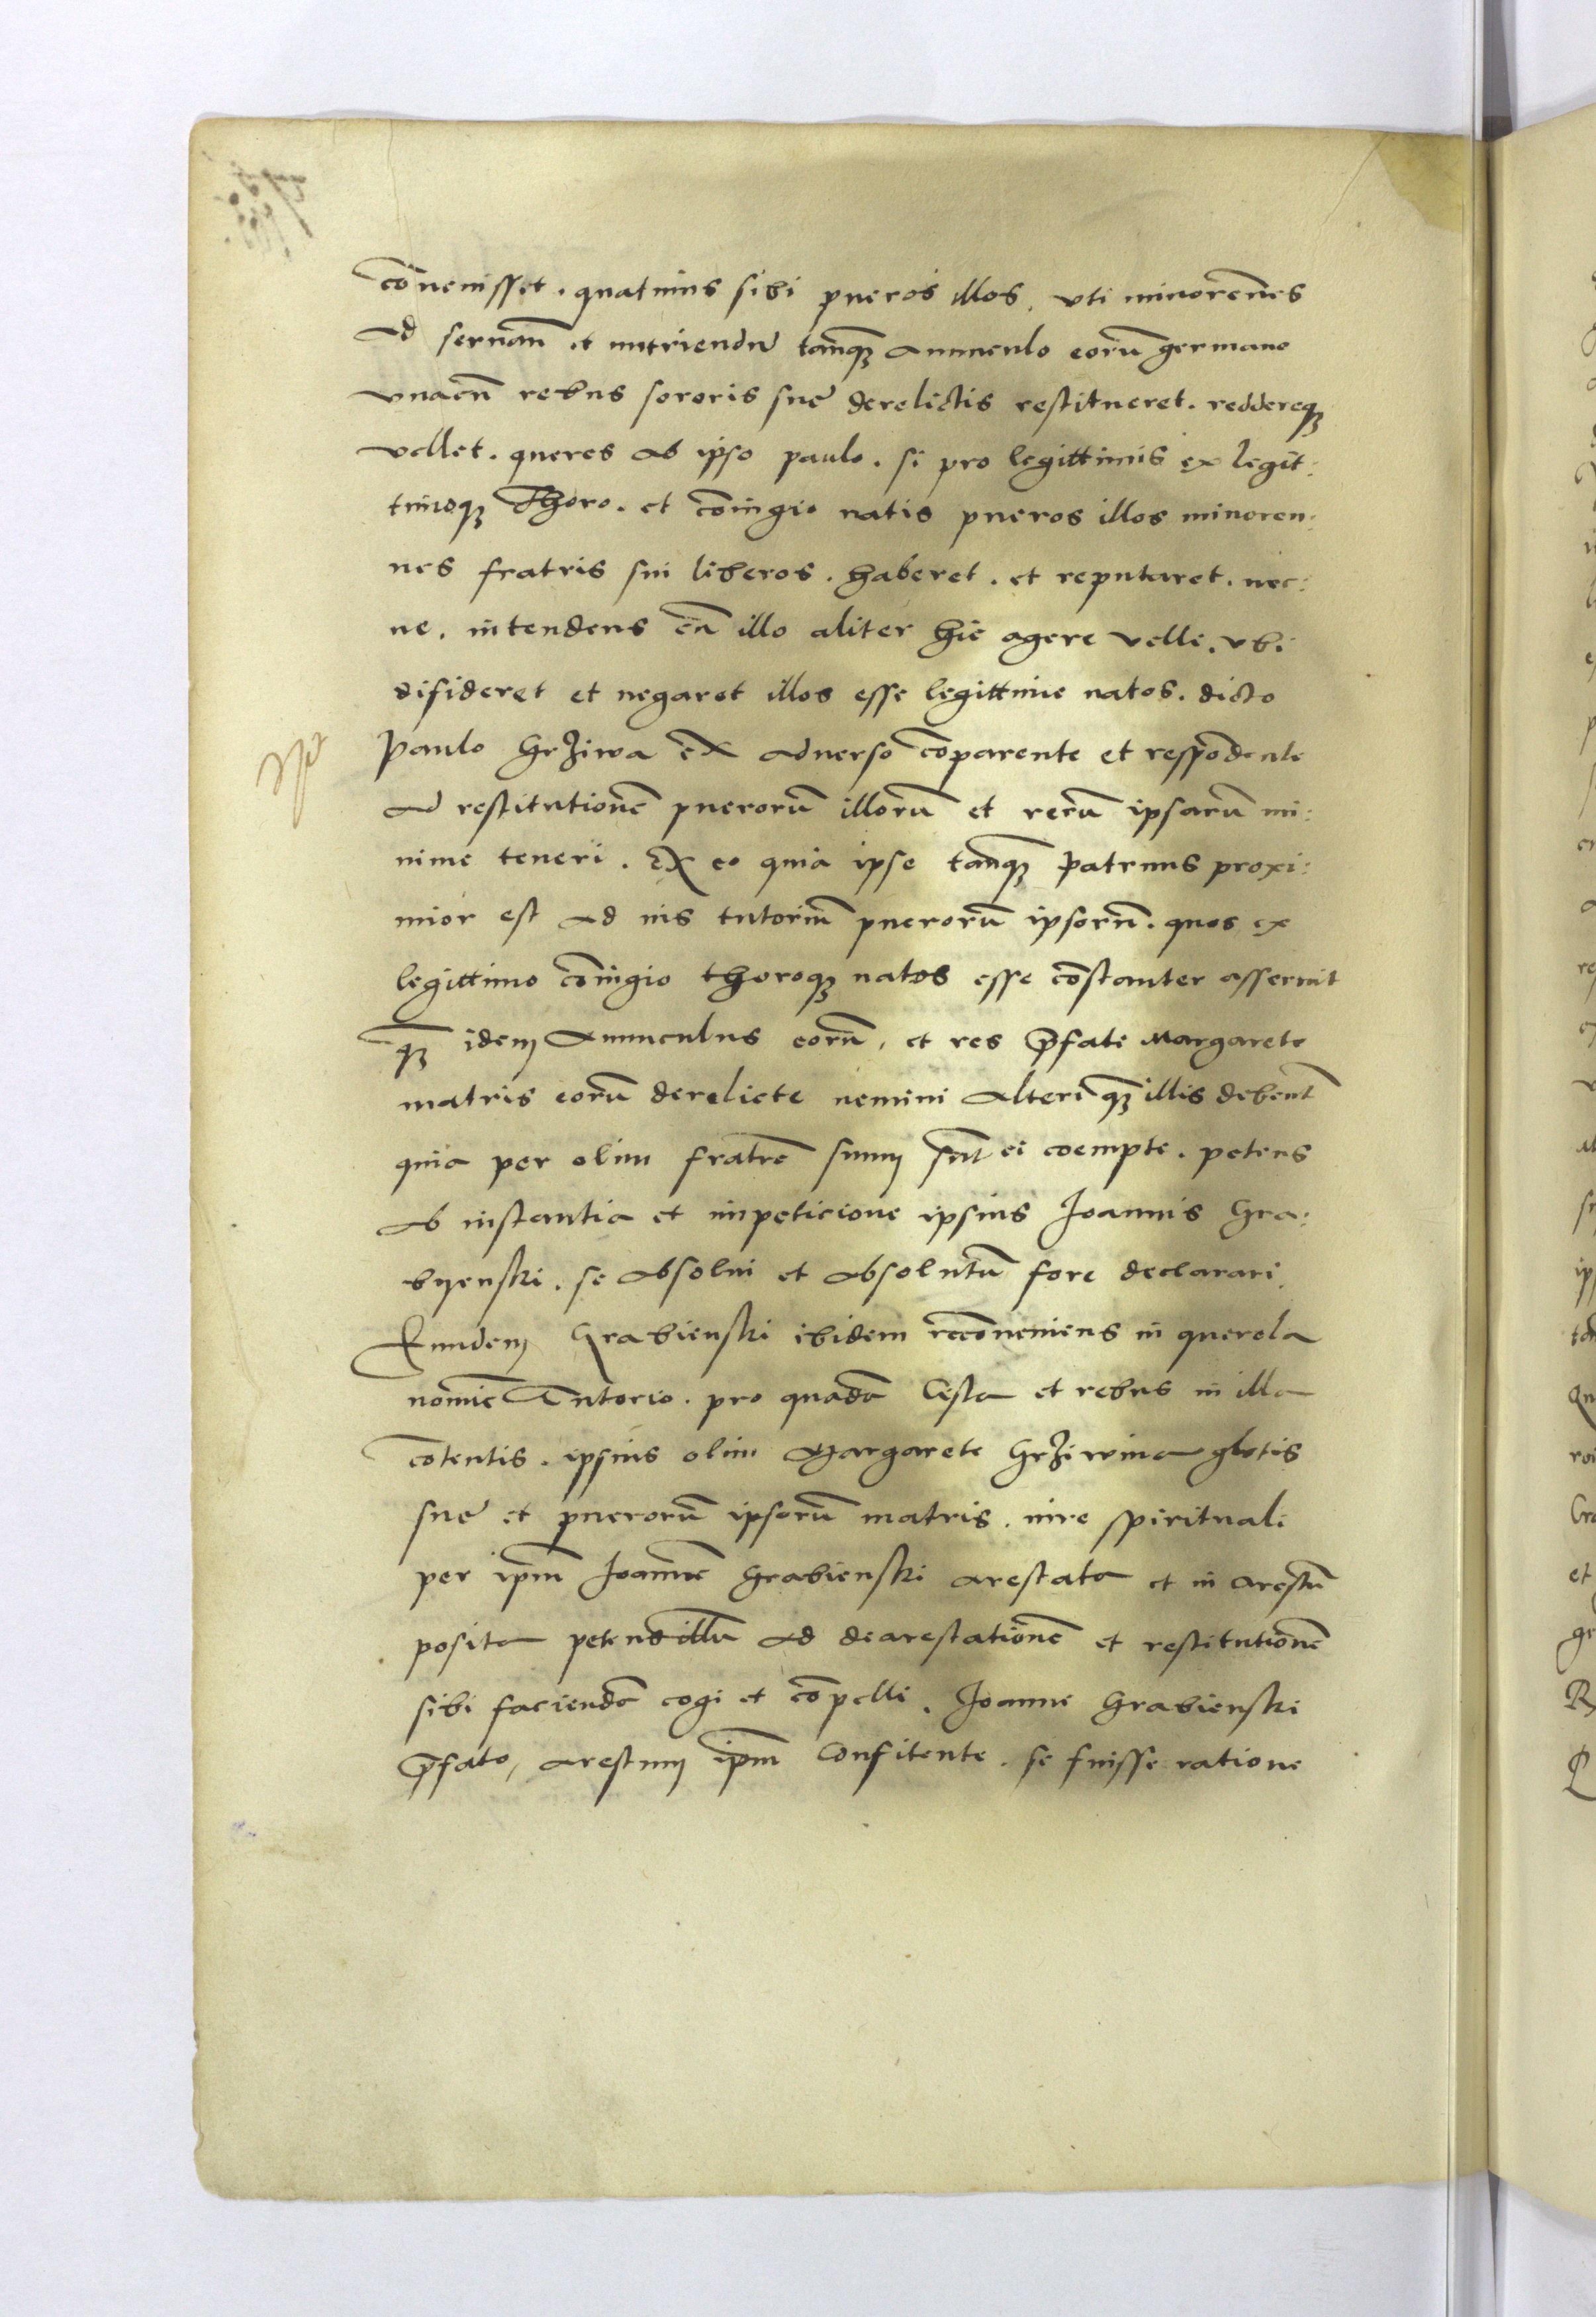 co̅uenisset. quatinus sibi pueros illos. vti minore̅nes
ad seruan̅ et nutriendu̅ tanq̅ꝫ Auunculo eoru̅ germano
vnacu̅ rebus sororis sue derelictis restitueret. reddereqꝫ
vellet. queres ab ipso paulo. si pro legittimis ex legit:
timoqꝫ Thoro. et co̅iugio natis pueros illos minoren:
nes fratris sui liberos. haberet. et reputaret. nec:
ne. intendens cu̅ illo aliter hic agere velle. vbi
disideret et negaret illos esse legittime natos. dicto
Paulo Grziwa ex aduerso co̅parente et respo̅dente
ad restitutione̅ pueroru̅ illoru̅ et reru̅ ipsaru̅ mi:
nime teneri. Ex eo quia ipse tanq̅ꝫ Patruus proxi:
mior est ad ius tutoriu̅ pueroru̅ ipsoru̅. quos ex
legittimo co̅iugio thoroqꝫ natos esse co̅stanter asseruit
q̅ꝫ idem Auunculus eoru̅, et res p̅fate Margarete
matris eoru̅ derelicte nemini alteri q̅ꝫ illis debent̅
quia per olim fratre̅ suum su̅t ei coempte. petens
ab instantia et impeticione ipsius Joannis Gra:
byenski. se absolui et absolutu̅ fore declarari.
Eundem Grabienski ibidem reco̅ueniens in querela
nomi̅e Tutorio. pro quada̅ Cista et rebus in illa
co̅tentis. ipsius olim Margarete Grziwina glotis
sue et pueroru̅ ipsoru̅ matris. iure spirituali
per ip̅m Joanne̅ Grabienski arestata et in arestu̅
posita petens illu̅ ad dearestatione̅ et restitutione̅
sibi facienda̅ cogi et co̅pelli. Joanne Grabienski
p̅fato, arestum ip̅m Confitente. se fuisse ratione